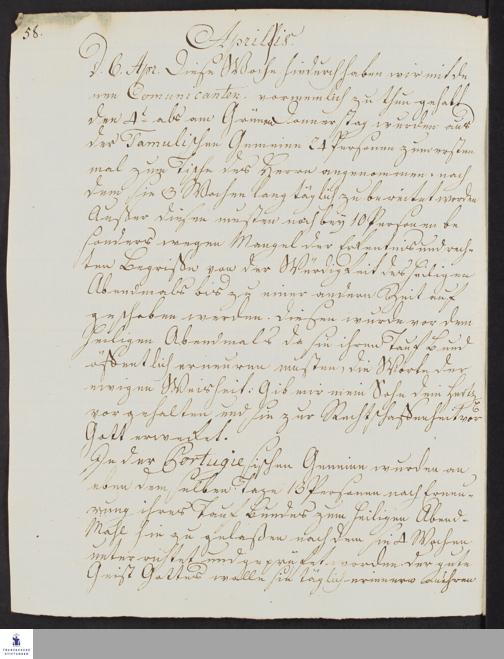 58.
Aprillis.
D. 6. Apr. Diese Woche hindurch haben wir mit de
nen Comunicanten vornemlich zu thun gehabt
den 4t. als am Grünen donnerstag wurden aus
der Tamulischen Gemeine 24 Personen zum ersten
mal zum Tische des Herrn angenommen, nach
dem sie 3 Wochen lang täglich zu bereitet worden
Außer diesen musten noch bey 10 Personen be
sonders wegen Mangel der Erkentnis und rech-
ten Begriffe von der Würdigkeit des heiligen
Abendmals bis zu einer andern Zeit auf
geschoben werden. Diesen wurde vor dem
heiligen Abendmals da sie ihren Tauf Bund
öffentlich erneuren musten, die Worte der
ewigen Weisheit: Gib mir mein Sohn dein Hertz
vor gehalten und sie zur Rechtschaffenheit vor
Gott erwecket.
In der Portugiesischen Gemeine wurden an
eben dem selben Tage 13 Personen nach Erneu-
rung ihres Tauf Bundes zum heiligen Abend-
Mahl hin zu gelaßen nach dem sie 4 Wochen
unterrichtet und geprüfet worden der gute
Geist Gottes wolle sie täglich erinnern an ihren
FRANCKESCHE
STIFTUNGEN